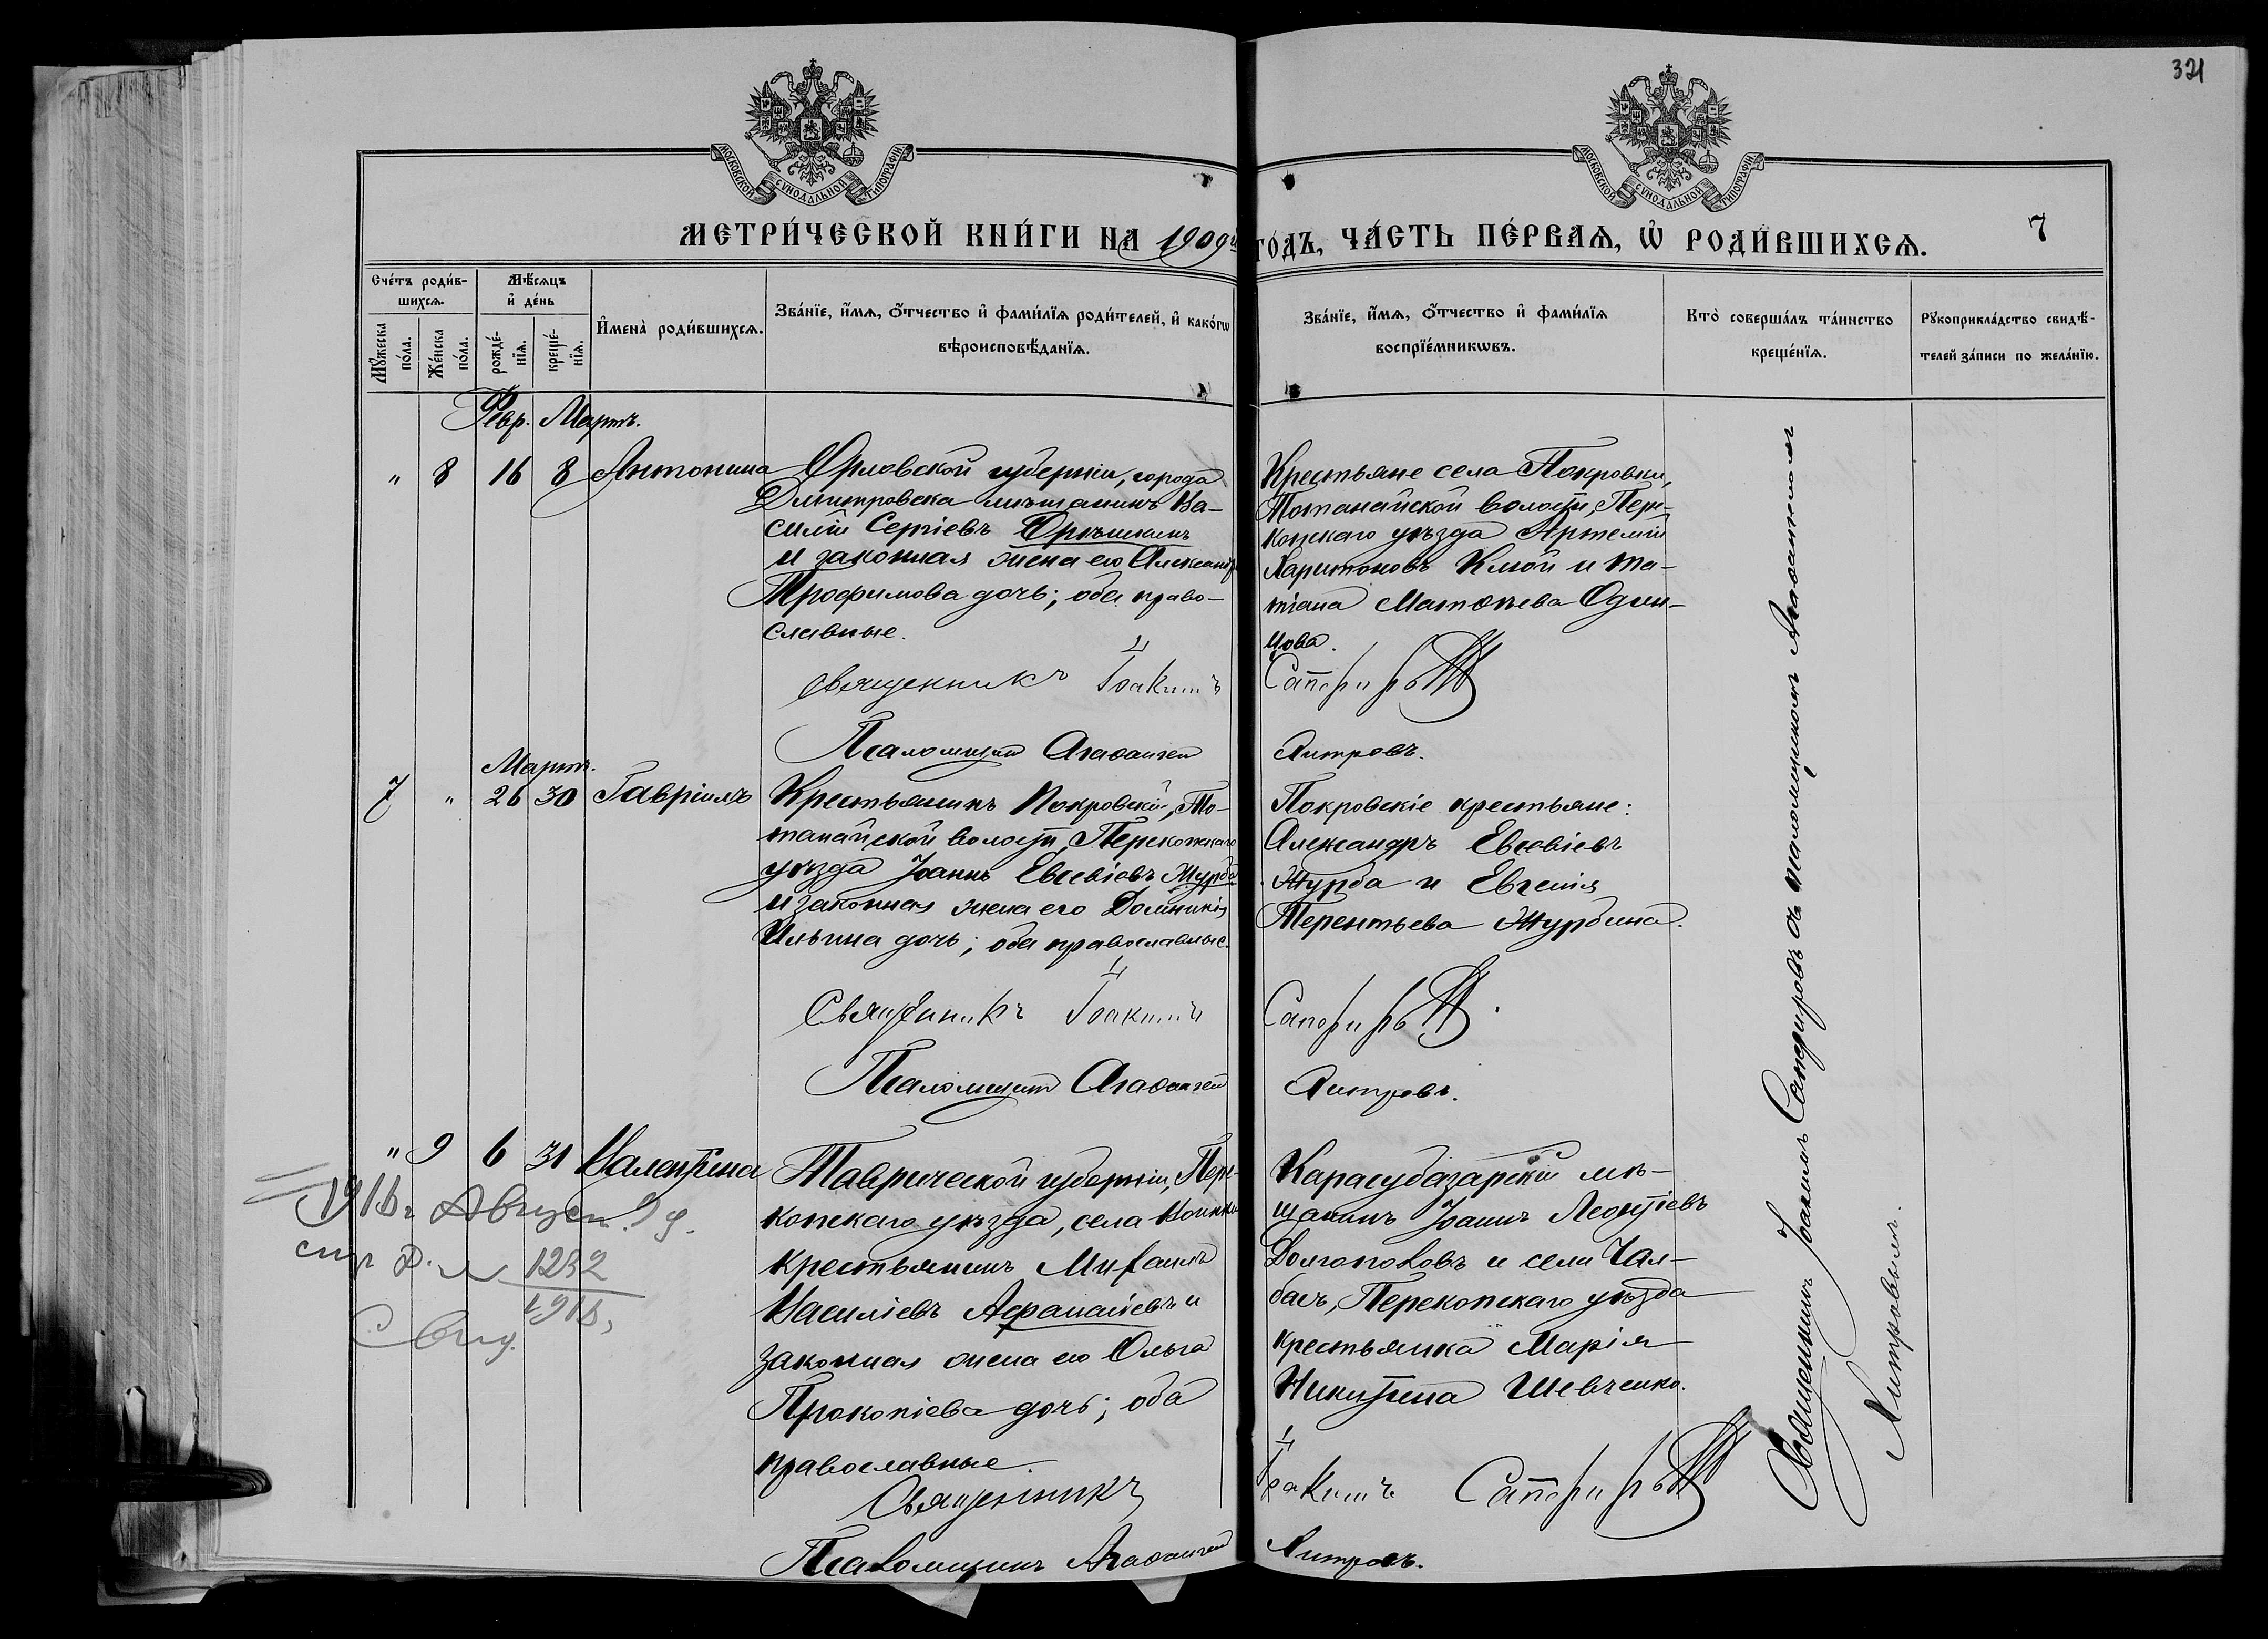 321
МОСКОВСКОЙ СѴНОДАЛЬНОЙ ТИПОГРАФІИ
МОСКОВСКОЙ СѴНОДАЛЬНОЙ ТИПОГРАФІИ
МЕТРИ́ЧЕСКОЙ КНИ́ГИ НА 1909й ГО́ДЪ, ЧА́СТЬ ПЕ́РВАѦ, Ѡ҆ РОДИ́ВШИХСѦ. 7
Сче́тъ роди́в-
шихсѧ.
Мꙋ́жеска
по́ла.
Же́нска
по́ла.
Мѣ́сѧцъ
и҆ де́нь
рожде́-
нїѧ.
креще́-
нїѧ.
И҆мена̀ роди́вшихсѧ.
Зва́нїе, и҆́мѧ, ѻ҆́тчество и҆ фами́лїѧ роди́телей, и҆ како́гѡ
вѣроисповѣ́данїѧ.
Зва́нїе, и҆́мѧ, ѻ҆́тчество и҆ фами́лїѧ
воспрїе́мникѡвъ.
Кто̀ соверша́лъ та́инство
креще́нїѧ.
Рꙋкоприкла́дство свидѣ́-
телей за́писи по жела́нїю.
Февр. Мартъ.
" 8 16 8 Антонина
Орловской губерніи, города
Дмитровска мѣщанинъ Ва-
силій Сергіевъ Орѣшкинъ
и законная жена его Александра
Трофимова дочь; оба право-
славные.
Священникъ Іоакимъ
Псаломщикъ Агаѳангел
Крестьяне села Покровки,
Тотанайской волости, Пере-
копскаго уѣзда Артемій
Харитоновъ Клюй и Та-
тіана Матѳѣева Один-
цова.
Сапфировъ
Литровъ.
Мартъ.
7 " 26 30 Гавріилъ
Крестьянинъ Покровскій, То-
танайской волости, Перекопскаго
уѣзда Іоаннъ Евсевіевъ Журба
и законная жена его Домникія
Ильина дочь; оба православные.
Священникъ Іоакимъ
Псаломщикъ Агаѳангел
Покровскіе крестьяне:
Александръ Евсевіевъ
Журба и Евгенія
Терентьева Журбина.
Сапфировъ
Литровъ.
" 9 6 31 Валентина
1916 г. Август. 9 д.
1232
1916
Свид.
Таврической губерніи, Пере-
копскаго уѣзда, села Воинки
крестьянинъ Михаилъ
Василіевъ Афанасіевъ и
законная жена его Ольга
Прокопіева дочь; оба
православные.
Священникъ
Псаломщикъ Агаѳангел
Карасубазарскій мѣ-
щанинъ Іоаннъ Леонтіевъ
Долгополовъ и села Чал-
басъ, Перекопскаго уѣзда
крестьянка Марія
Никитина Шевченко.
Іоакимъ Сапфировъ
Литровъ.
Священникъ Іоакимъ Сапфировъ съ псаломщикомъ Агаѳангеломъ
Литровымъ.